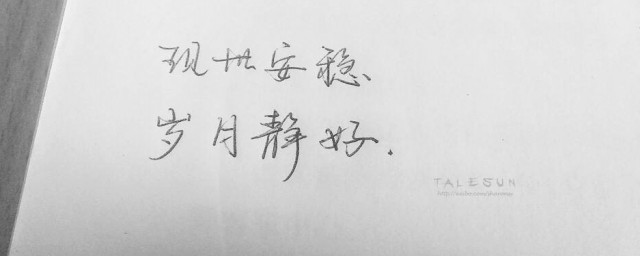 现世安稳
岁月静好.
TALESUN